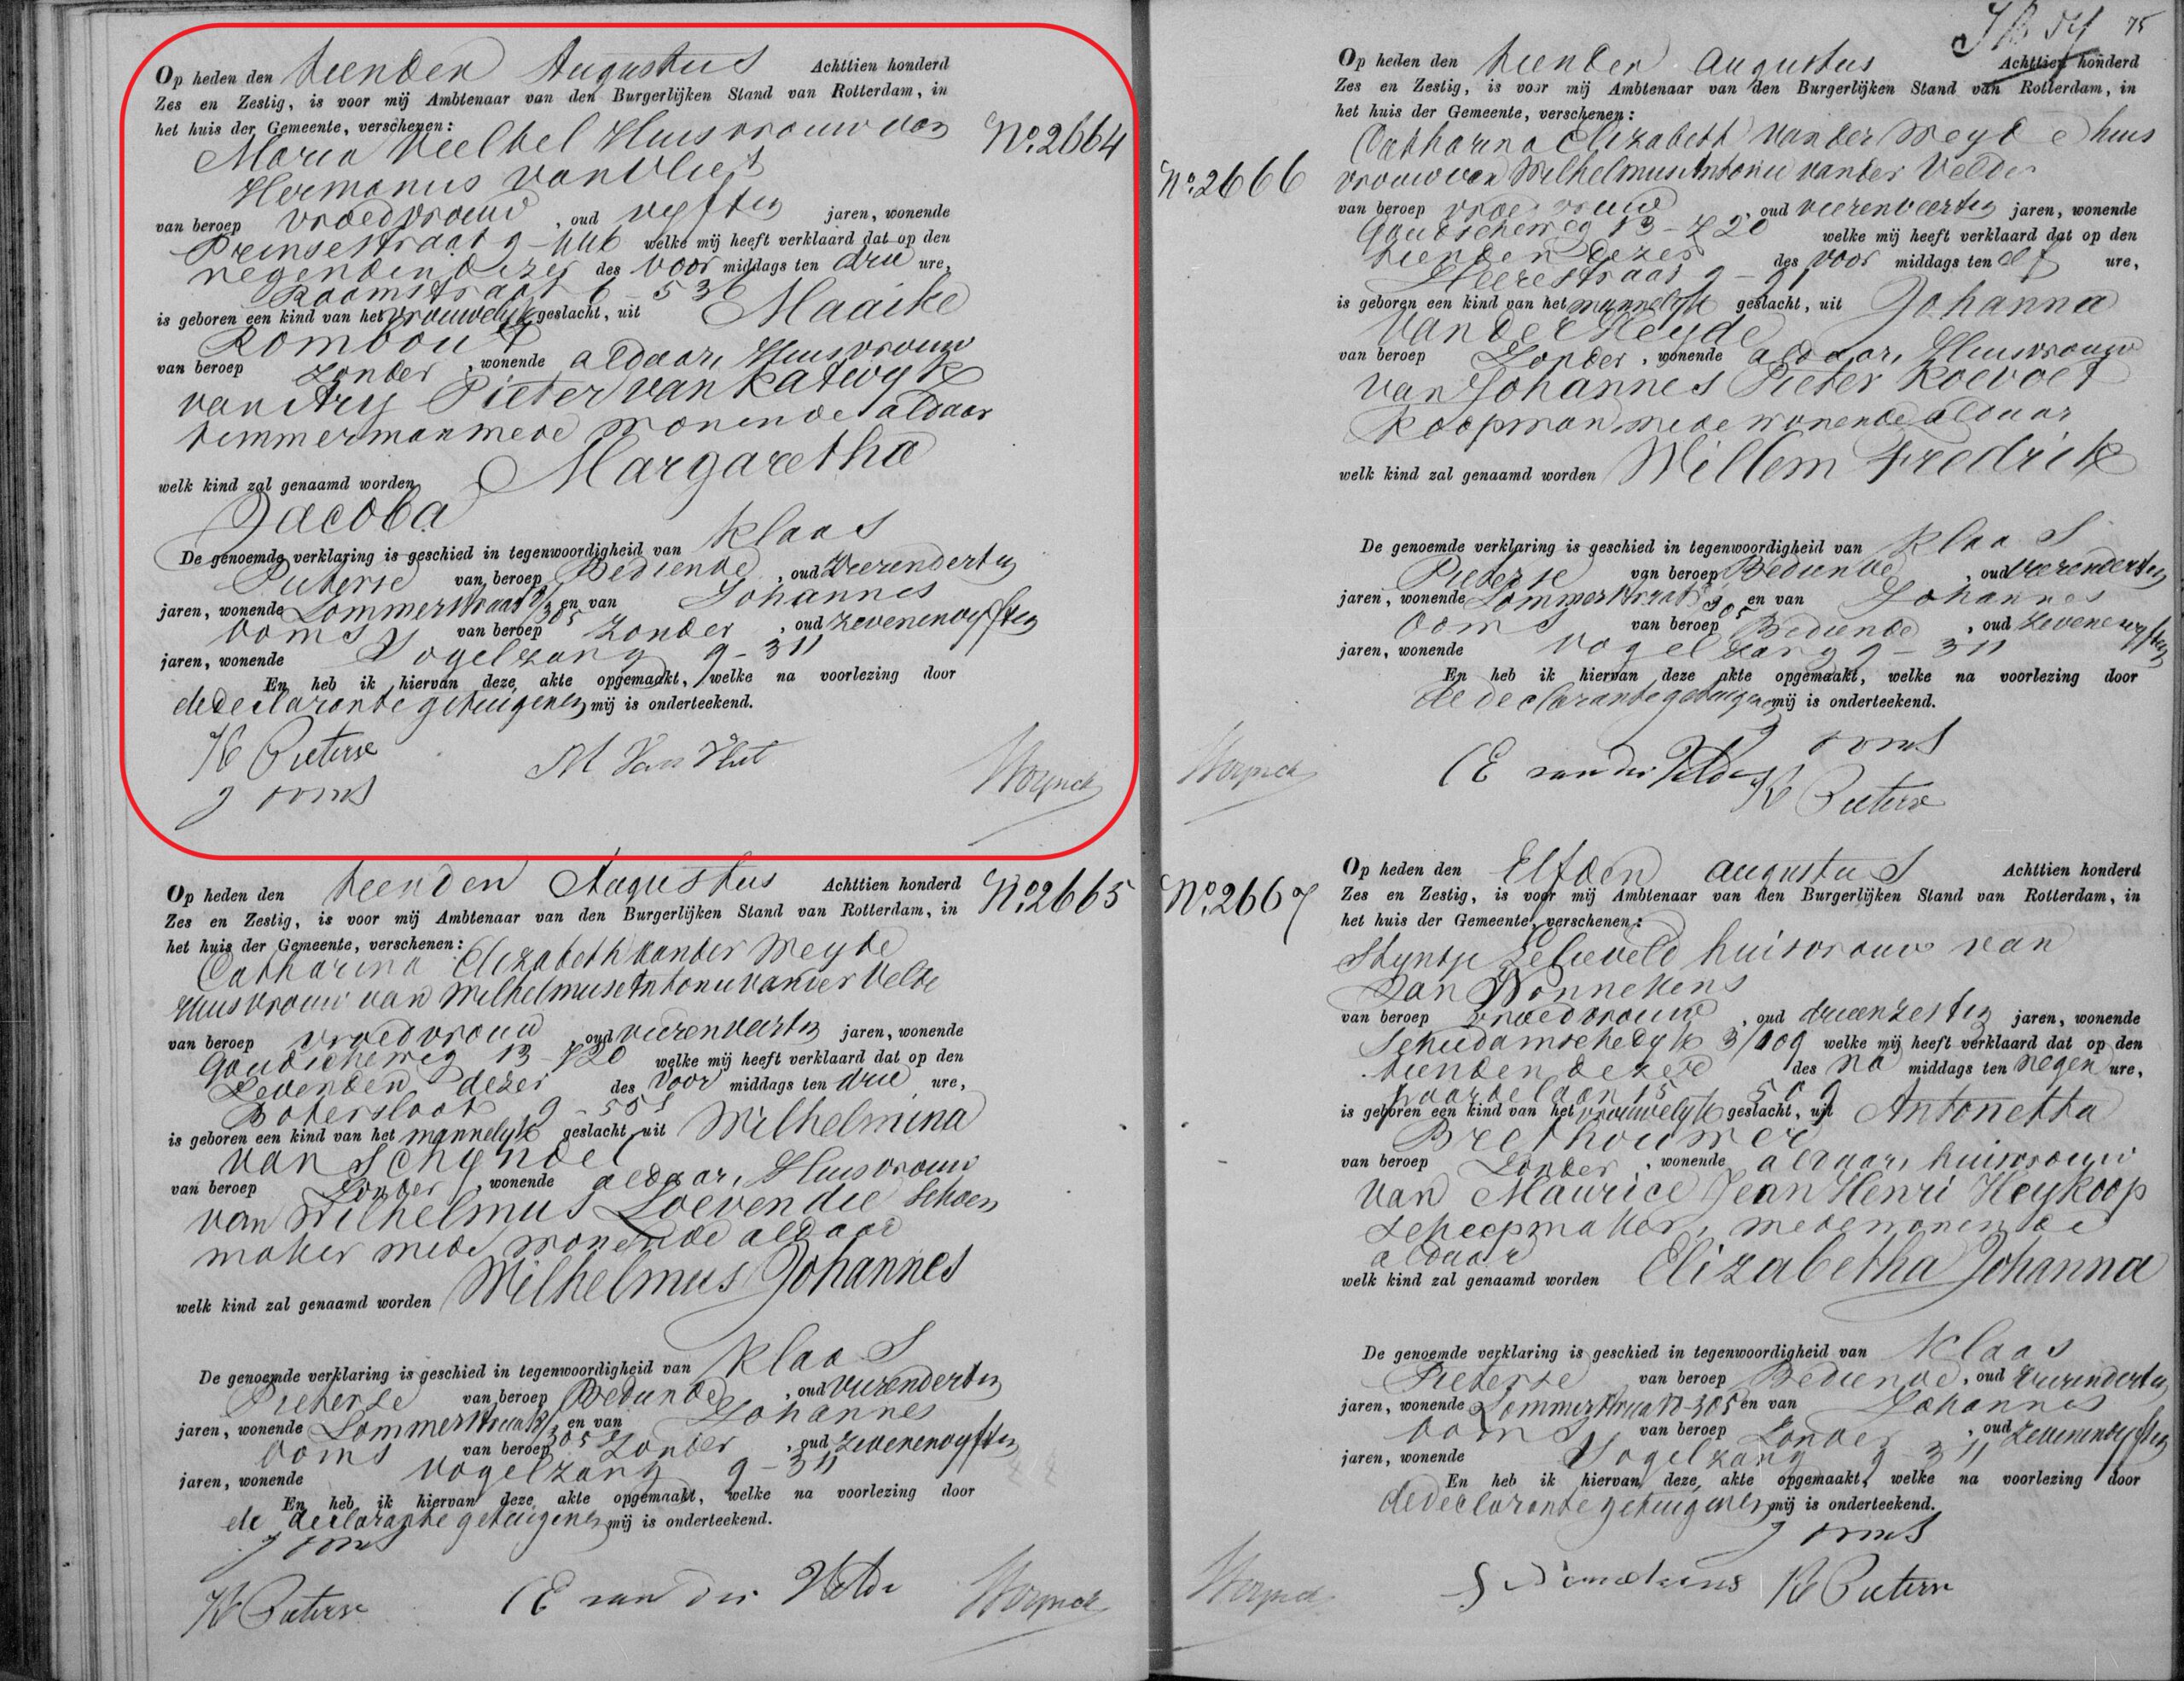 Op heden den tienden Augustus Achttien honderd
Zes en Zestig, is voor mij Ambtenaar van den Burgerlijken Stand van Rotterdam, in
het huis der Gemeente, verschenen:
No. 2664
Maria Huisvrouw van
Hermanus van Vliet
van beroep vroedvrouw, oud vyftig jaren, wonende
Prinsestraat 9 - welke mij heeft verklaard dat op den
negenden dezer des voor middags ten drie ure,
Raamstraat 6 - 536
is geboren een kind van het vrouwelyk geslacht, uit Maaike
Rombout
van beroep zonder, wonende aldaar, Huisvrouw
van Ary Pieter van Katwyk
timmerman mede wonende aldaar
welk kind zal genaamd worden Margaretha
Jacoba
De genoemde verklaring is geschied in tegenwoordigheid van Klaas
Pieterse van beroep Bediende, oud vierendertig
jaren, wonende Lommerstraat 305 en van Johannes
Ooms van beroep zonder, oud zevenenvyftig
jaren, wonende Vogelzang 9 - 311
En heb ik hiervan deze akte opgemaakt, welke na voorlezing door
de declarante getuigen en mij is onderteekend.
K Pieterse M van Vliet
J Ooms
Op heden den tienden Augustus Achttien honderd
Zes en Zestig, is voor mij Ambtenaar van den Burgerlijken Stand van Rotterdam, in
het huis der Gemeente, verschenen:
No. 2665
Catharina Elizabeth van der Weyde
Huisvrouw van Wilhelmus Antonie van der Velde
van beroep vroedvrouw, oud vierenveertig jaren, wonende
Goudscheweg 13 - 720 welke mij heeft verklaard dat op den
zevenden dezer des voor middags ten drie ure,
Botersloot 9 - 
is geboren een kind van het mannelyk geslacht, uit Wilhelmina
van Schyndel
van beroep zonder, wonende aldaar, Huisvrouw
van Wilhelmus Loevendie Schoen
maker mede wonende aldaar
welk kind zal genaamd worden Wilhelmus Johannes
De genoemde verklaring is geschied in tegenwoordigheid van Klaas
Pieterse van beroep Bediende, oud vierendertig
jaren, wonende Lommerstraat 305 en van Johannes
Ooms van beroep zonder, oud zevenenvyftig
jaren, wonende Vogelzang 9 - 311
En heb ik hiervan deze akte opgemaakt, welke na voorlezing door
de declarante getuigen en mij is onderteekend.
J Ooms
K Pieterse C E van der Velde
75
Op heden den tienden Augustus Achttien honderd
Zes en Zestig, is voor mij Ambtenaar van den Burgerlijken Stand van Rotterdam, in
het huis der Gemeente, verschenen:
No. 2666
Catharina Elizabeth van der Weyde huis
vrouw van Wilhelmus Antonie van der Velde
van beroep vroedvrouw, oud vierenveertig jaren, wonende
Goudscheweg 13 - 720 welke mij heeft verklaard dat op den
tienden dezer des voor middags ten elf ure,
Heerestraat 9 - 91
is geboren een kind van het mannelyk geslacht, uit Johanna
van der Heyde
van beroep Zonder, wonende aldaar, Huisvrouw
van Johannes Pieter Koevoet
Koopman mede wonende aldaar
welk kind zal genaamd worden Willem Fredrik
De genoemde verklaring is geschied in tegenwoordigheid van Klaas
Pieterse van beroep Bediende, oud vierendertig
jaren, wonende Lommerstraat 305 en van Johannes
Ooms van beroep Bediende, oud zevenenvyftig
jaren, wonende Vogelzang 9 - 311
En heb ik hiervan deze akte opgemaakt, welke na voorlezing door
de declarante getuigen en mij is onderteekend.
J Ooms
C E van der Velde K Pieterse
Op heden den Elfden augustus Achttien honderd
Zes en Zestig, is voor mij Ambtenaar van den Burgerlijken Stand van Rotterdam, in
het huis der Gemeente, verschenen:
No. 2667
Styntje Lelieveld huisvrouw van
Jan Wonnekens
van beroep vroedvrouw, oud drieenzestig jaren, wonende
Schiedamschedyk 3/109 welke mij heeft verklaard dat op den
tienden dezer des na middags ten negen ure,
15 - 509
is geboren een kind van het vrouwelyk geslacht, uit Antonetta
Brethouwer
van beroep Zonder, wonende aldaar, huisvrouw
van Maurice Jean Henri Heykoop
scheepmaker, mede wonende
aldaar
welk kind zal genaamd worden Elizabetha Johanna
De genoemde verklaring is geschied in tegenwoordigheid van Klaas
Pieterse van beroep Bediende, oud vierendertig
jaren, wonende Lommerstraat 305 en van Johannes
Ooms van beroep Zonder, oud zevenenvyftig
jaren, wonende Vogelzang 9 - 311
En heb ik hiervan deze akte opgemaakt, welke na voorlezing door
de declarante getuigen en mij is onderteekend.
J Ooms
K Pieterse